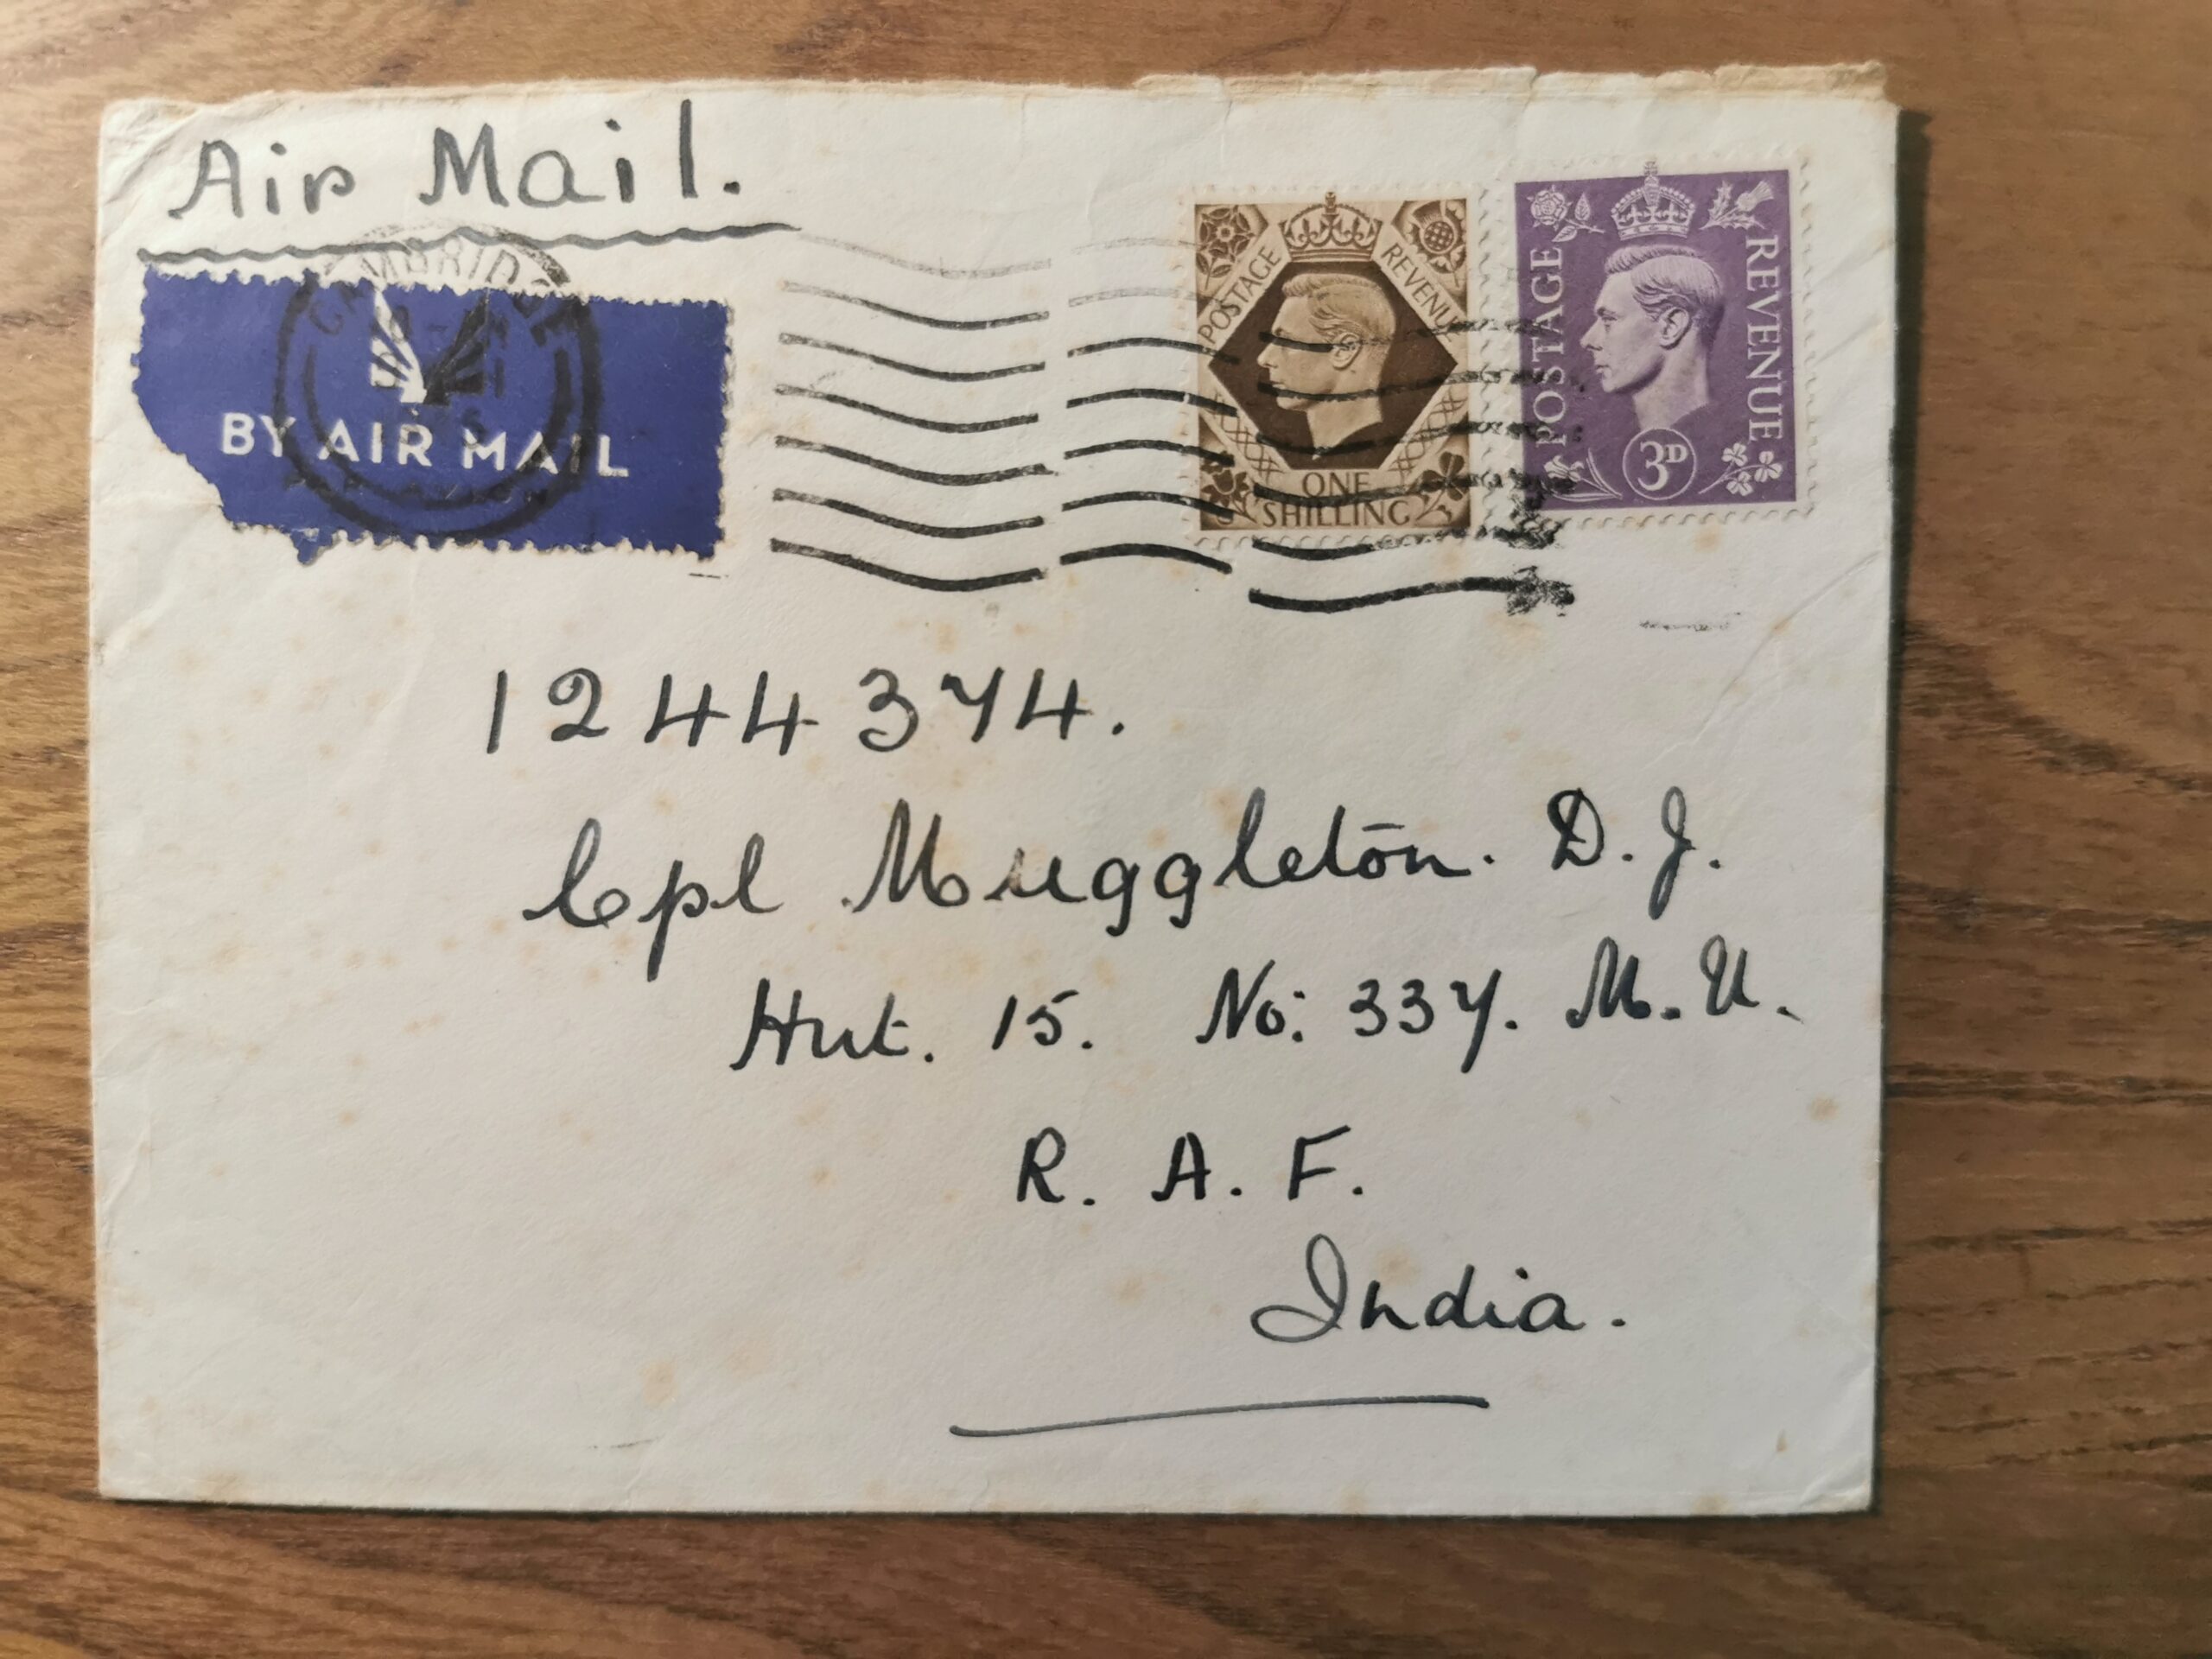 Air Mail.
CAMBRIDGE
BY AIR MAIL
PAR AVION
POSTAGE REVENUE
ONE
SHILLING
POSTAGE REVENUE
3D
1244374.
Cpl Muggleton. D.J.
Hut. 15. No: 337. M.U.
R. A. F.
India.